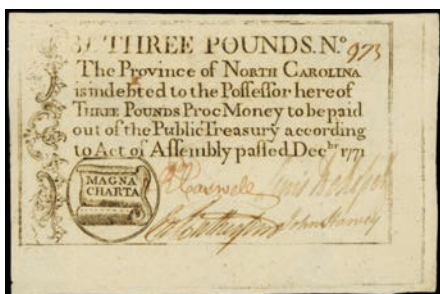 THREE POUNDS. Nº 973
The Province of NORTH CAROLINA
is indebted to the Poſſeſſor hereof
THREE POUNDS Proc Money to be paid
out of the Public Treasury according
to Act of Aſſembly paſſed Decbr 1771
MAGNA
CHARTA
R Caswell
John Harvey